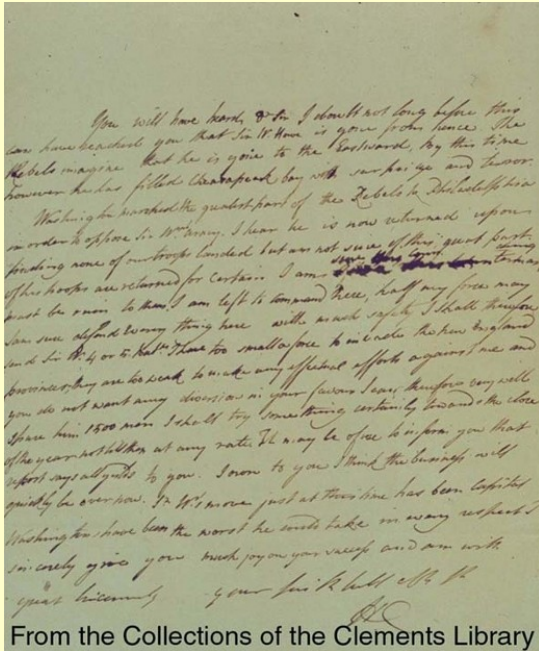 You will have heard Dr Sir I doubt not long before this
can have reached you that Sir W. Howe is gone from hence. The
Rebels imagine that he is gone to the Eastward, By this time
however he has filled Chesapeak bay with surprize and terror
Washington marched the greatest part of the Rebels to Philadelphia
in order to oppose Sir Wms army. I hear he is now returned upon
finding none of our troops landed but am not sure of this, great part
of his troops are returned for certain I am sure this
must be ruin to them, I am left to command here, half my force may
I am sure defend every thing here with much safety I shall therefore
send Sir W. 4 or 5 Batns I have too small a force to invade the New England
provinces, they are too weak to make any effectual efforts against me and
you do not want any diversion in your favour I can therefore very well
spare him 1500 men I shall try something certainly towards the close
of the year not till then at any rate. It may be of use to inform you that
report says all yields to you. I own to you I think the business will
quickly be over now. Sr W's move just at this time has been capital
Washingtons have been the worst he could take in every respect I
sincerely give you much joy on your success and am with
great Sincerity your
HC
From the Collections of the Clements Library